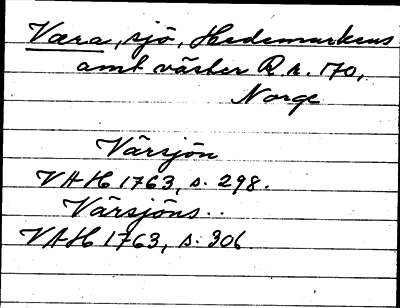 Væra, sjö, Hedemarkens
amt väster R r. 170,
Norge
Värsjön
VAH 1763, s. 298.
Värsjöns..
VAH 1763, s. 306.